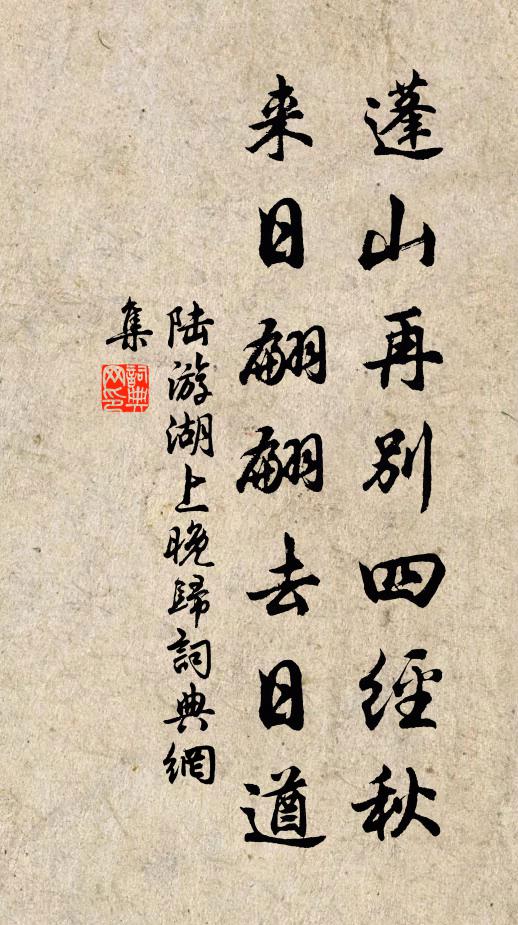 蓬山再别四經秋
来日翩翩去日遒
陸游湖上晚歸詞典網
集
詞典
网印